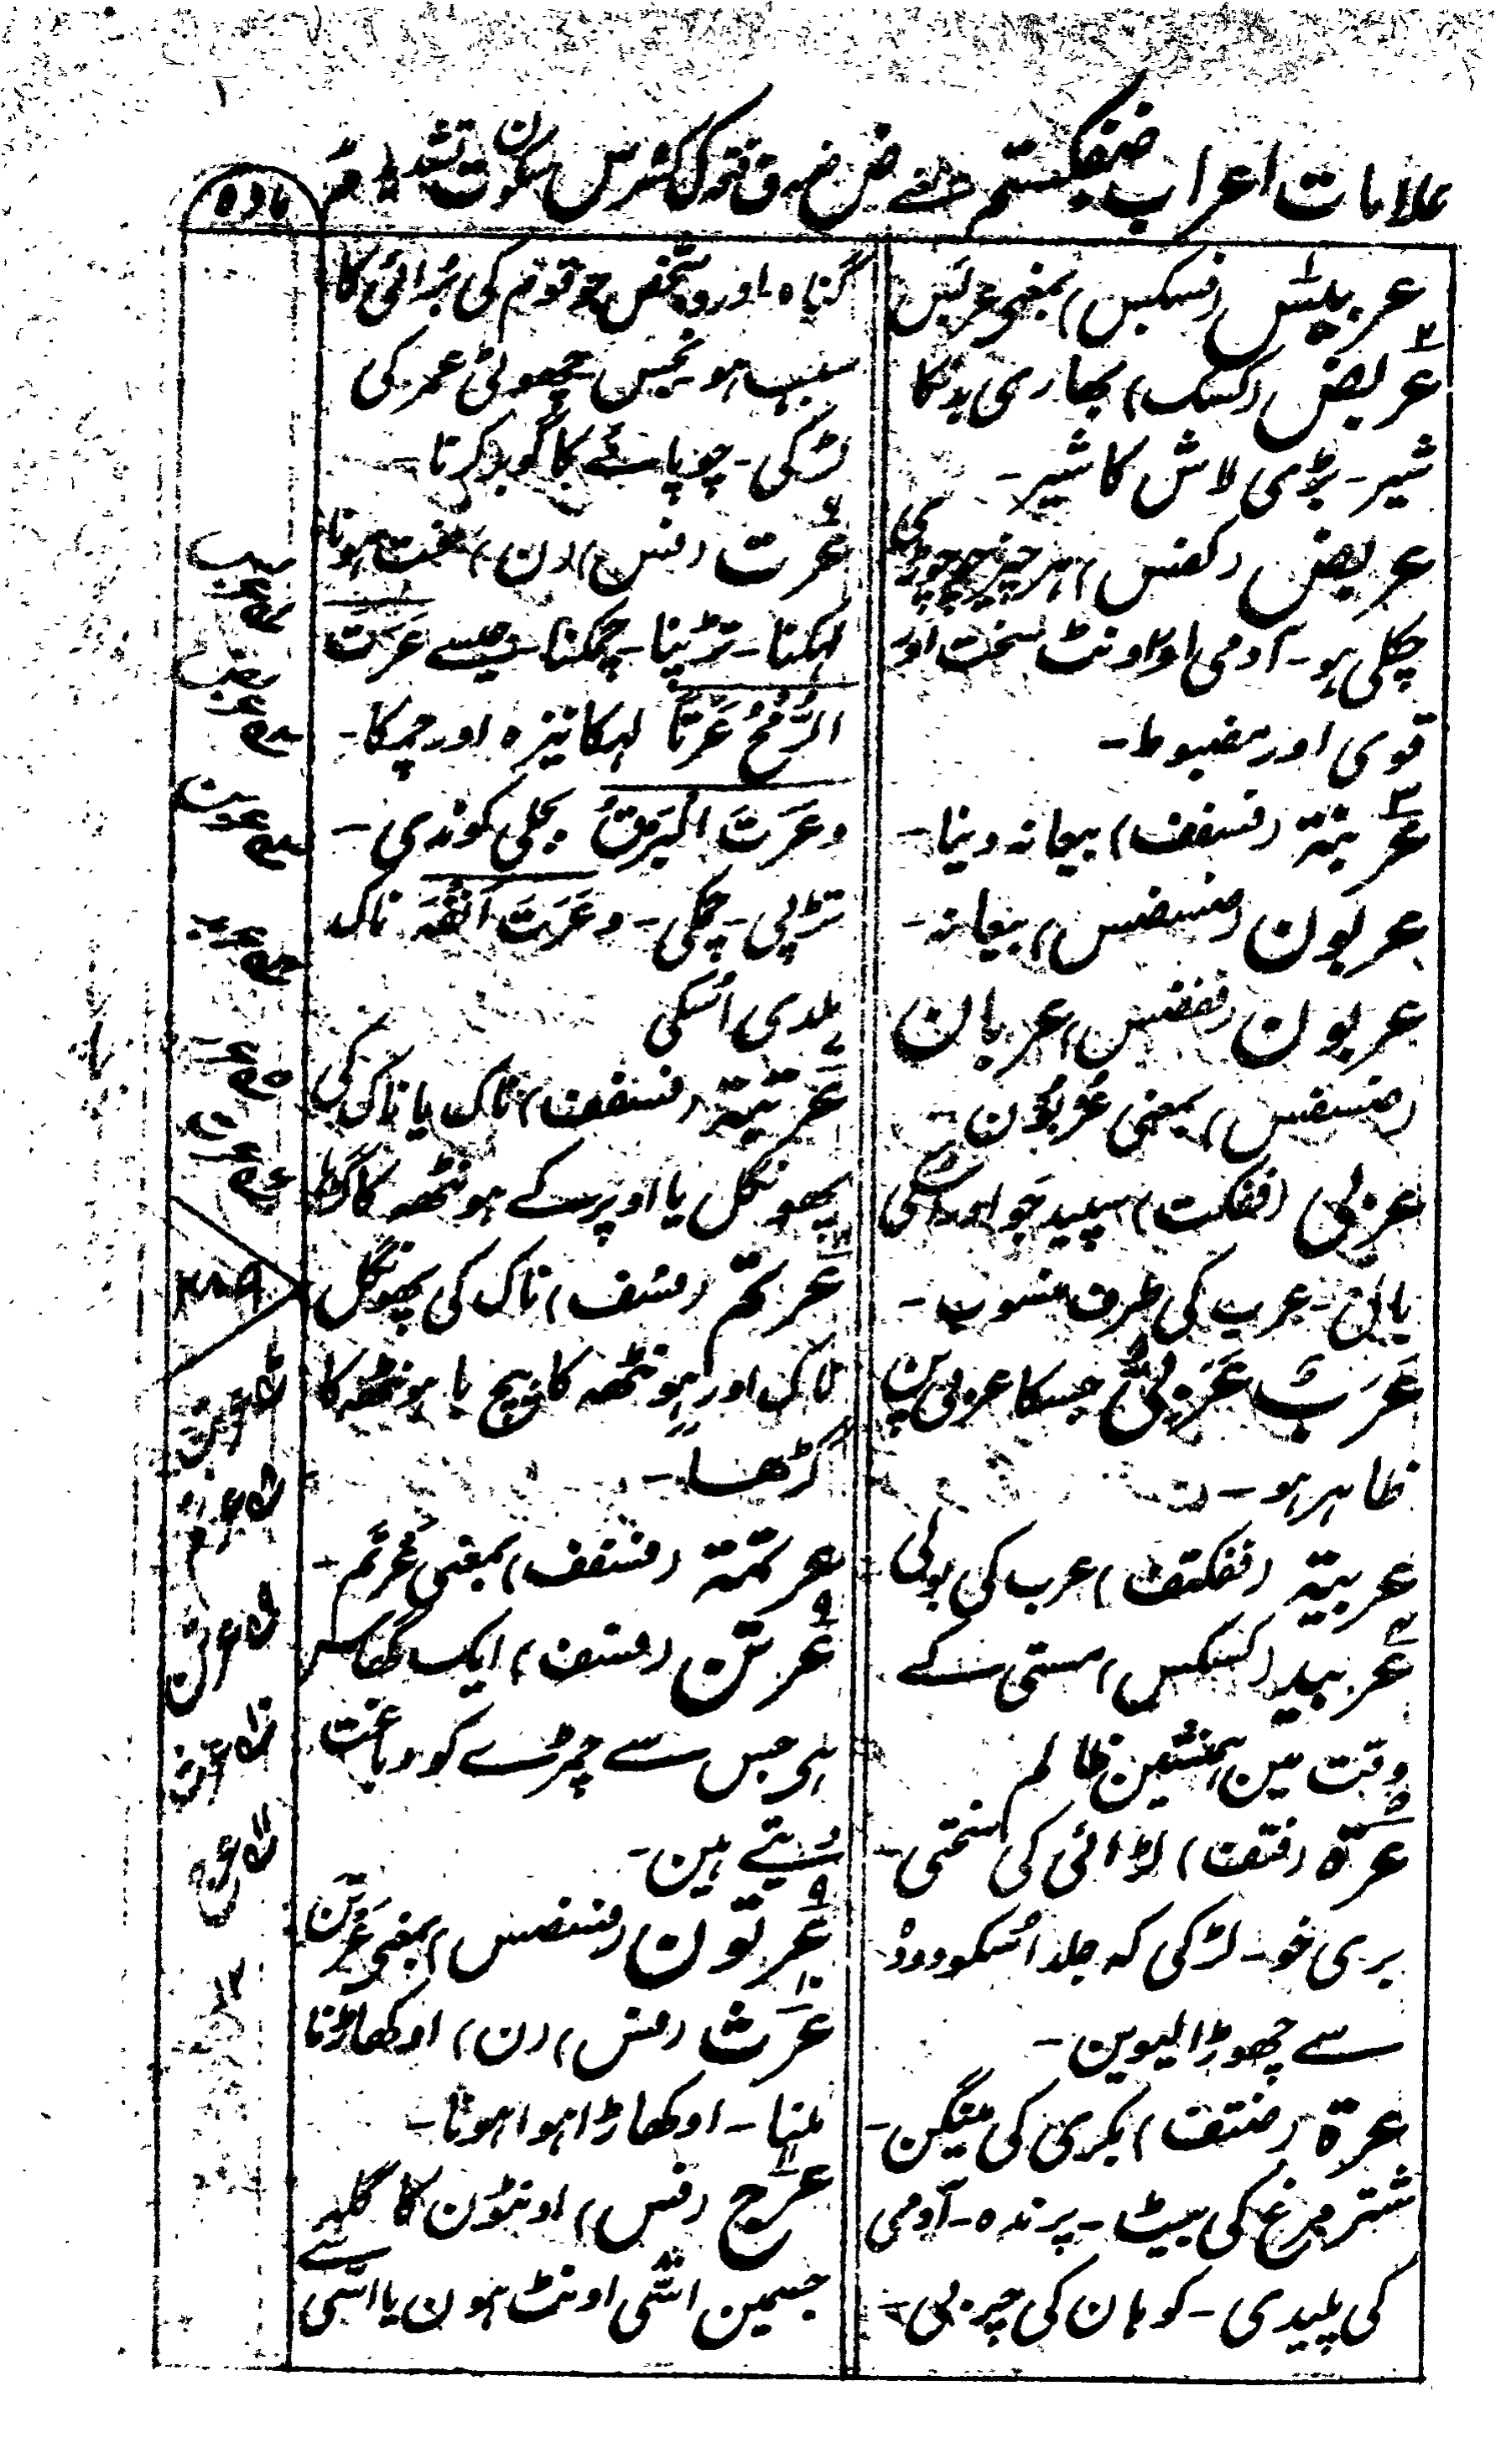 علامات اعراب ضفکستم یعنے ض ضمہ ف فتحہ ک کسرہ س سکون ت تشدید م مد
مادہ
عربیس (فسکس) بمعنی عربس
عربض (کسک) بھاری بدن کا
شیر۔ بڑی لاش کا شیر۔
عریض (کفس) ہر چیز جو چوڑی
چکلی ہو۔ آدمی اور اونٹ سخت اور
قوی اور مضبوط۔
عربنة (فسفف) بیعانہ دینا۔
عربون (ضسضس) بیعانہ۔
عربون (ففضس) عربان
(ضسفس) بمعنی عُربُون۔
عربی (ففکت) سپید جَو اور اسکی
بالی۔ عرب کی طرف منسوب۔
عَرَبٌ عَرَبِیٌّ جسکا عربی پن
ظاہر ہو۔
عربیة (ففکتف) عرب کی بولی
عربید (کسکس) مستی کے
وقت مین ہمنشین ظالم
عرّة (فتف) لڑائی کی سختی۔
بری خو۔ لڑکی کہ جلد اُسکو دودھ
سے چھوڑا لیوین۔
عرة (ضتف) بکری کی مینگن۔
شتر مرغ کی بیٹ۔ پرندہ۔ آدمی
کی پلیدی۔ کوہان کی چربی۔
گناہ۔ اور وہ شخص جو قوم کی بُرائی کا
سبب ہو چھوٹی عمر کی
لڑکی۔ چوپائے کا گوبر کرنا۔
عرت (فس) (ن) سخت ہونا
لہکنا۔ تڑپنا۔ چمکنا۔ جیسے عَرَتَ
الرُّمحُ عَرتًا لہکا نیزہ اور چمکا۔
وعَرَتَ البَرقُ بجلی کوندی۔
تڑپی۔ چمکی۔ وعَرَتَ اَنفَهَ ناک
ملدی اُسکی
عرتبة (فسفف) ناک یا ناک کی
پھونگل یا اوپر کے ہونٹھ کا گڑھا
عرتم (فسف) ناک کی پھونگل
ناک اور ہونٹھ کا بیچ یا ہونٹھ کا
گڑھا۔
عرتمة (فسفف) بمعنی عَرتَم۔
عرتن (فسف) ایک گھاس
ہی جس سے چمڑے کو دباغت
دیتے ہین۔
عرتون (فسضس) بمعنی عَرتَن
عرث (فس) (ن) اوکھاڑنا
ملنا۔ اوکھاڑا ہوا ہونا۔
عرج (فس) اونٹون کا گلہ
جسمین اسّی اونٹ ہون یا اسّی سے